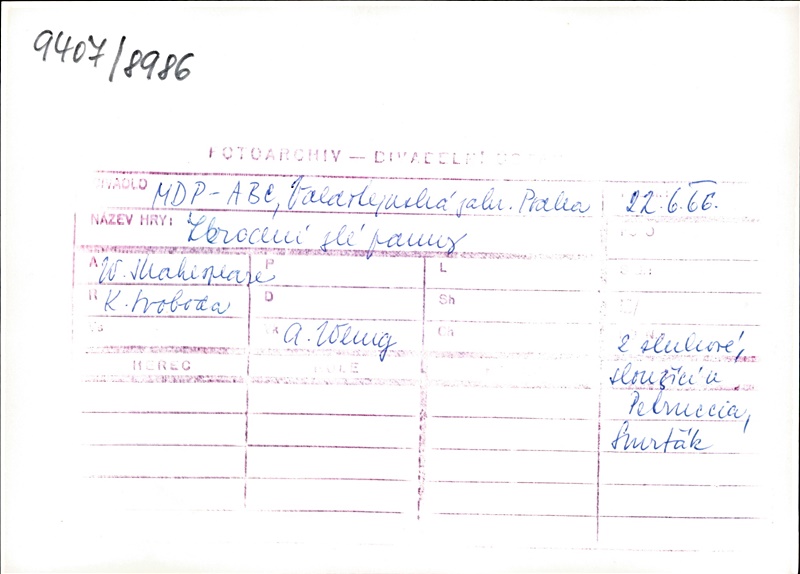 9407/8986
FOTOARCHIV — DIVADELNÍ
DIVADLO MDP-ABC, Valdštejnská zahr. Praha 22.6.66.
NÁZEV HRY: Zkrocení zlé panny
A W. Shakespeare P L
R K. Svoboda D Sh
A. Wenig Ch
2 sluhové,
HEREC ROLE
sloužící u
Petruccia,
Smrťák